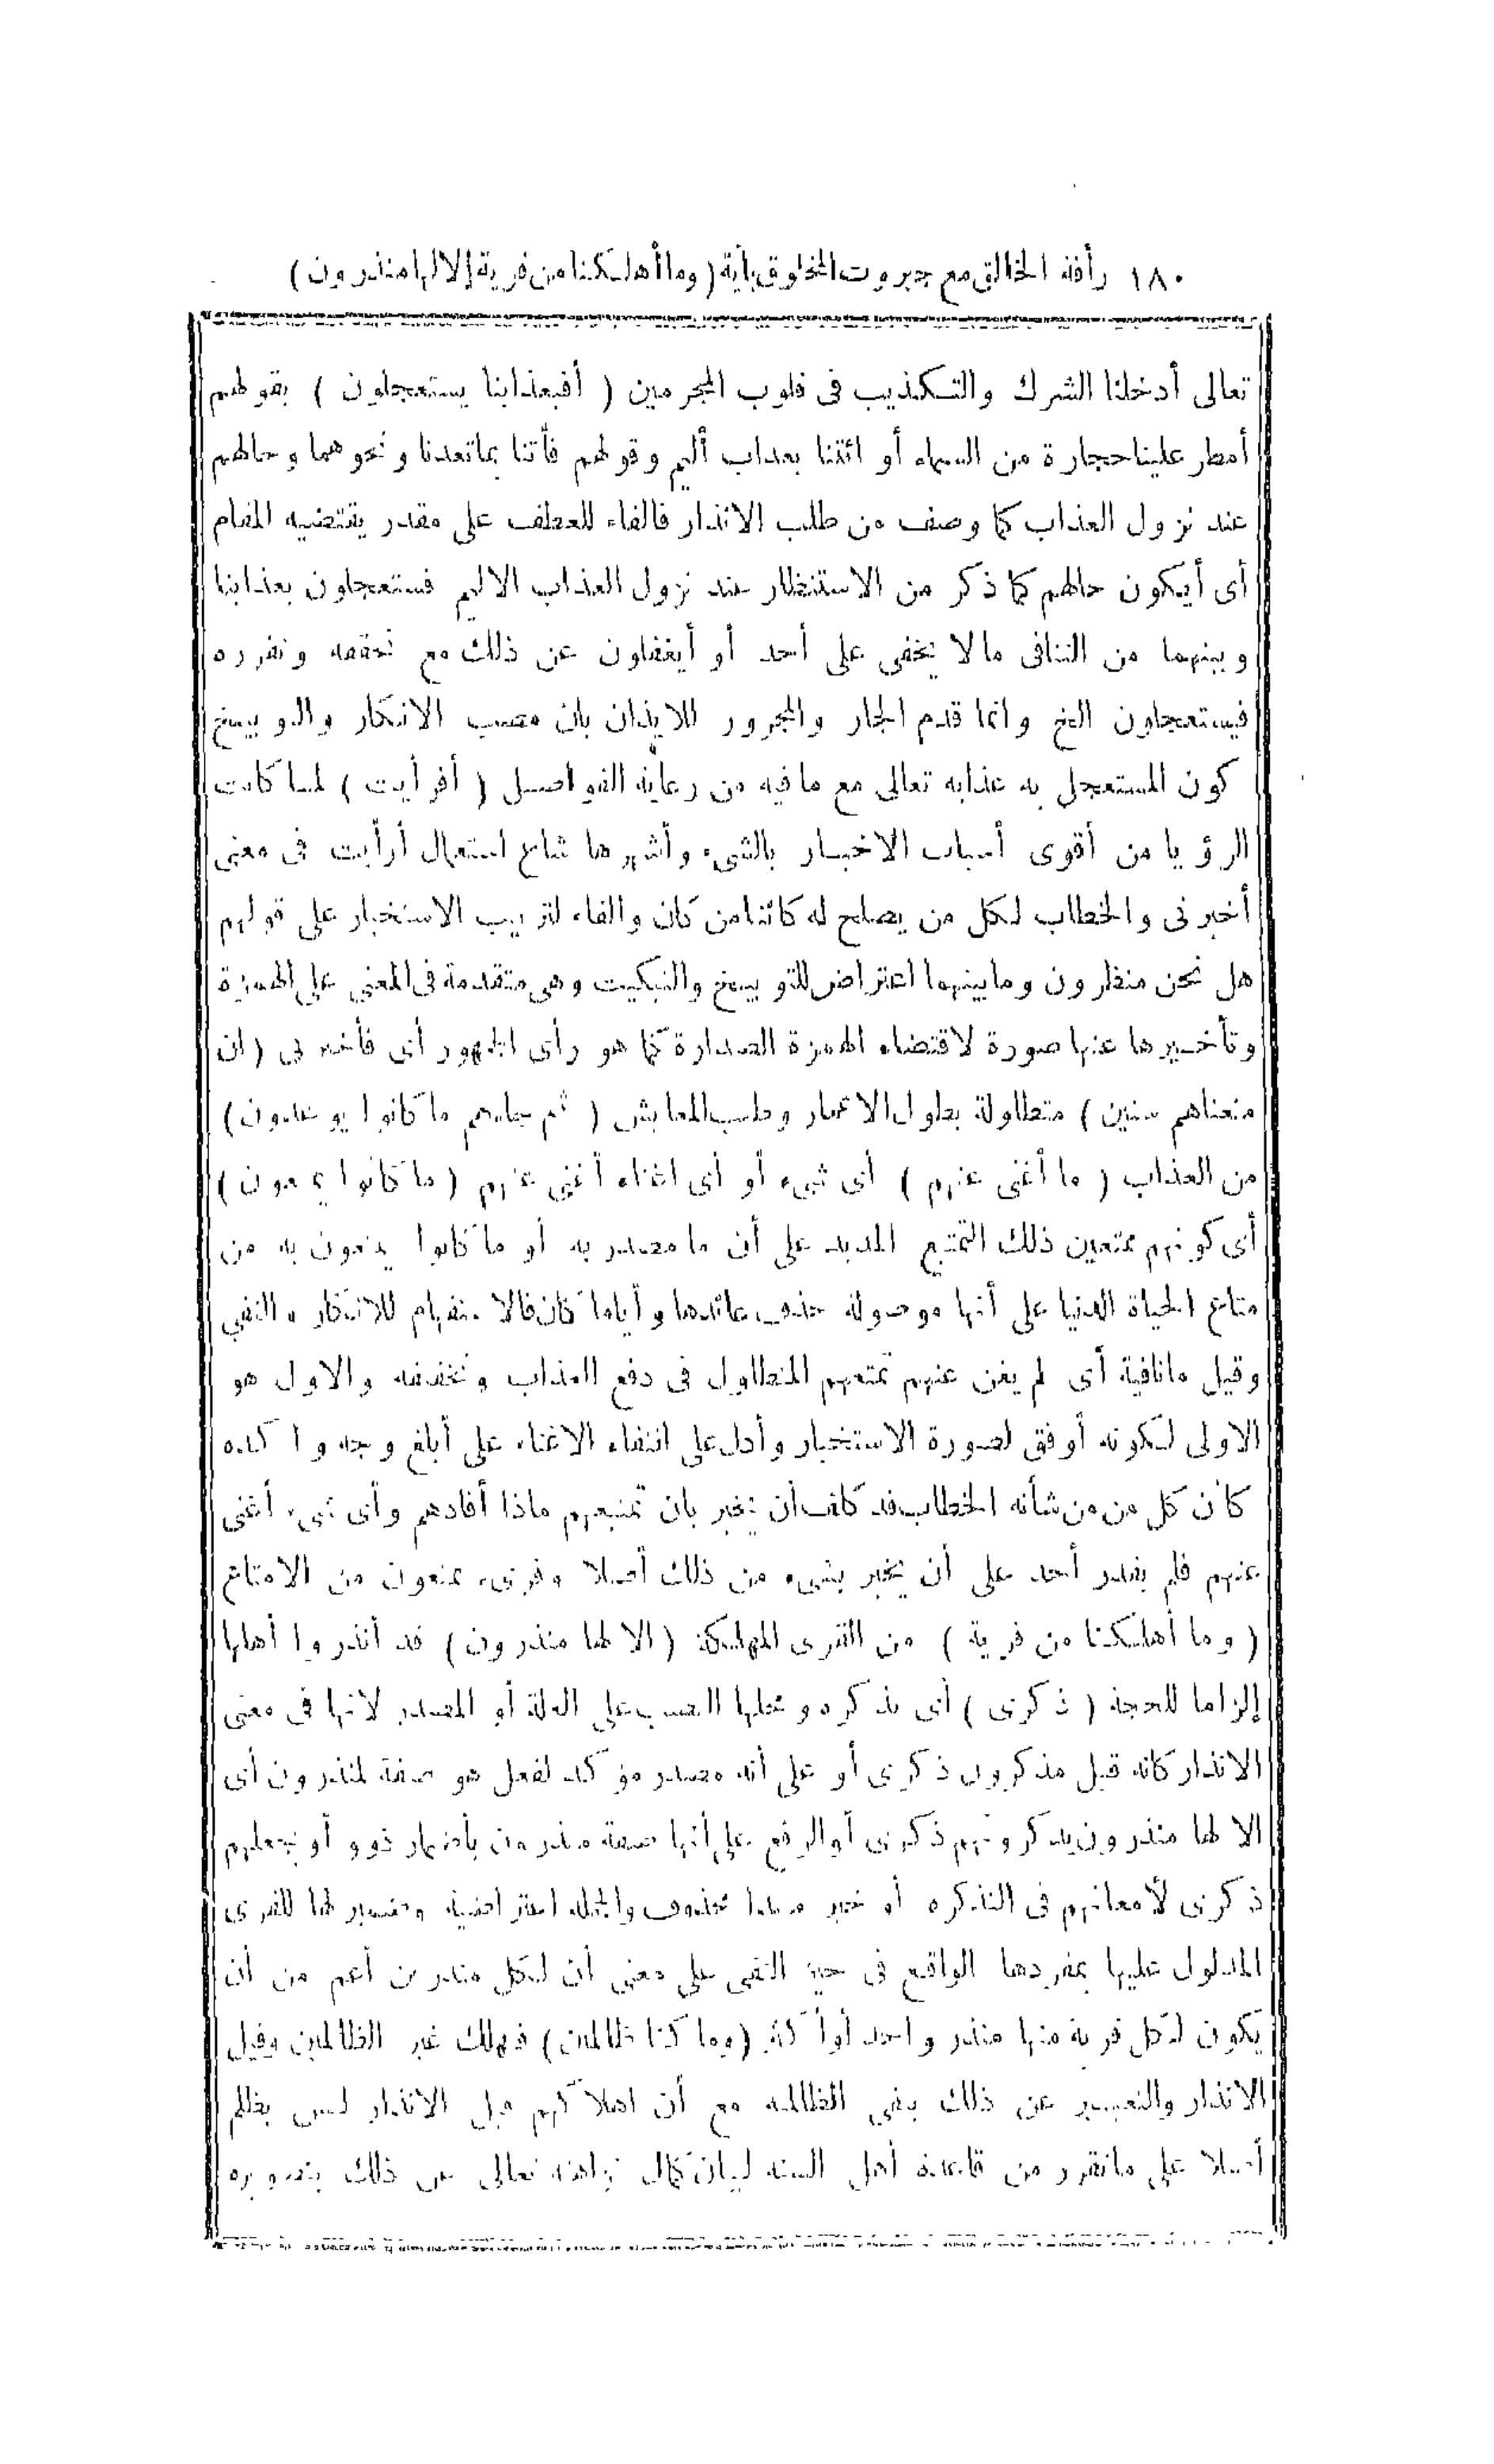 ١٨٠ رأفة الخالق مع جبروت المخلوق بآية (وما أهلكنا من قرية إلا لها منذرون)
تعالى أدخلنا الشرك والتكذيب فى قلوب المجرمين ( أفبعذابنا يستعجلون ) بقولهم
أمطر علينا حجارة من السماء أو ائتنا بعذاب أليم وقولهم فأتنا بما تعدنا ونحوهما وحالهم
عند نزول العذاب كما وصف من طلب الانذار فالفاء للعطف على مقدر يقتضيه المقام
أى أيكون حالهم كما ذكر من الاستنظار عند نزول العذاب الاليم فيستعجلون بعذابنا
وبينهما من التنافى مالا يخفى على أحد أو أيغفلون عن ذلك مع تحققه وتقرره
فيستعجلون الخ وانما قدم الجار والمجرور للايذان بان مصب الانكار والتوبيخ
كون المستعجل به عذابه تعالى مع ما فيه من رعاية الفواصل ( أفرأيت ) لما كانت
الرؤيا من أقوى أسباب الاخبار بالشىء وأشهرها شاع استعمال أرأيت فى معنى
أخبرنى والخطاب لكل من يصلح له كائنا من كان والفاء لترتيب الاستخبار على قولهم
هل نحن منظرون وما بينهما اعتراض للتوبيخ والتبكيت وهى متقدمة فى المعنى على الهمزة
وتأخيرها عنها صورة لاقتضاء الهمزة الصدارة كما هو رأى الجمهور أى فأخبرنى (ان
متعناهم سنين ) متطاولة بطول الاعمار وطيب المعايش ( ثم جاءهم ما كانوا يوعدون )
من العذاب ( ما أغنى عنهم ) أى شىء أو أى اغناء أغنى عنهم ( ما كانوا يمتعون )
أى كونهم ممتعين ذلك التمتيع المديد على أن ما مصدرية أو ما كانوا يمتعون به من
متاع الحياة الدنيا على أنها موصولة حذف عائدها وأياما كان فالاستفهام للانكار والنفى
وقيل ما نافية أى لم يغن عنهم تمتعهم المتطاول فى دفع العذاب وتخفيفه والاول هو
الاولى لكونه أوفق لصورة الاستخبار وأدل على انتفاء الاغناء على أبلغ وجه وآكده
كأن كل من من شأنه الخطاب قد كلف أن يخبر بان تمتيعهم ماذا أفادهم وأى شىء أغنى
عنهم فلم يقدر أحد على أن يخبر بشىء من ذلك أصلا وقرىء يمتعون من الامتاع
( وما أهلكنا من قرية ) من القرى المهلكة ( الا لها منذرون ) قد أنذروا أهلها
إلزاما للحجة ( ذكرى ) أى تذكرة ومحلها النصب على العلة أو المصدر لانها فى معنى
الانذار كانه قيل مذكرون ذكرى أو على أنه مصدر مؤكد لفعل هو صفة لمنذرون أى
الا لها منذرون يذكرونهم ذكرى أو الرفع على أنها صفة منذرون بأضمار ذوو أو بجعلهم
ذكرى لأمعانهم فى التذكرة أو خبر مبتدا محذوف والجملة اعتراضية وضمير لها للقرى
المدلول عليها بمفردها الواقع فى حيز النفى على معنى أن لكل منذرين أعم من أن
يكون لكل قرية منها منذر واحد أو أكثر (وما كنا ظالمين) فنهلك غير الظالمين وقبل
الانذار والتعبير عن ذلك بنفى الظالمية مع أن اهلاكهم قبل الانذار ليس بظلم
أصلا على ما تقرر من قاعدة أهل السنة لبيان كمال نزاهته تعالى عن ذلك بتصويره